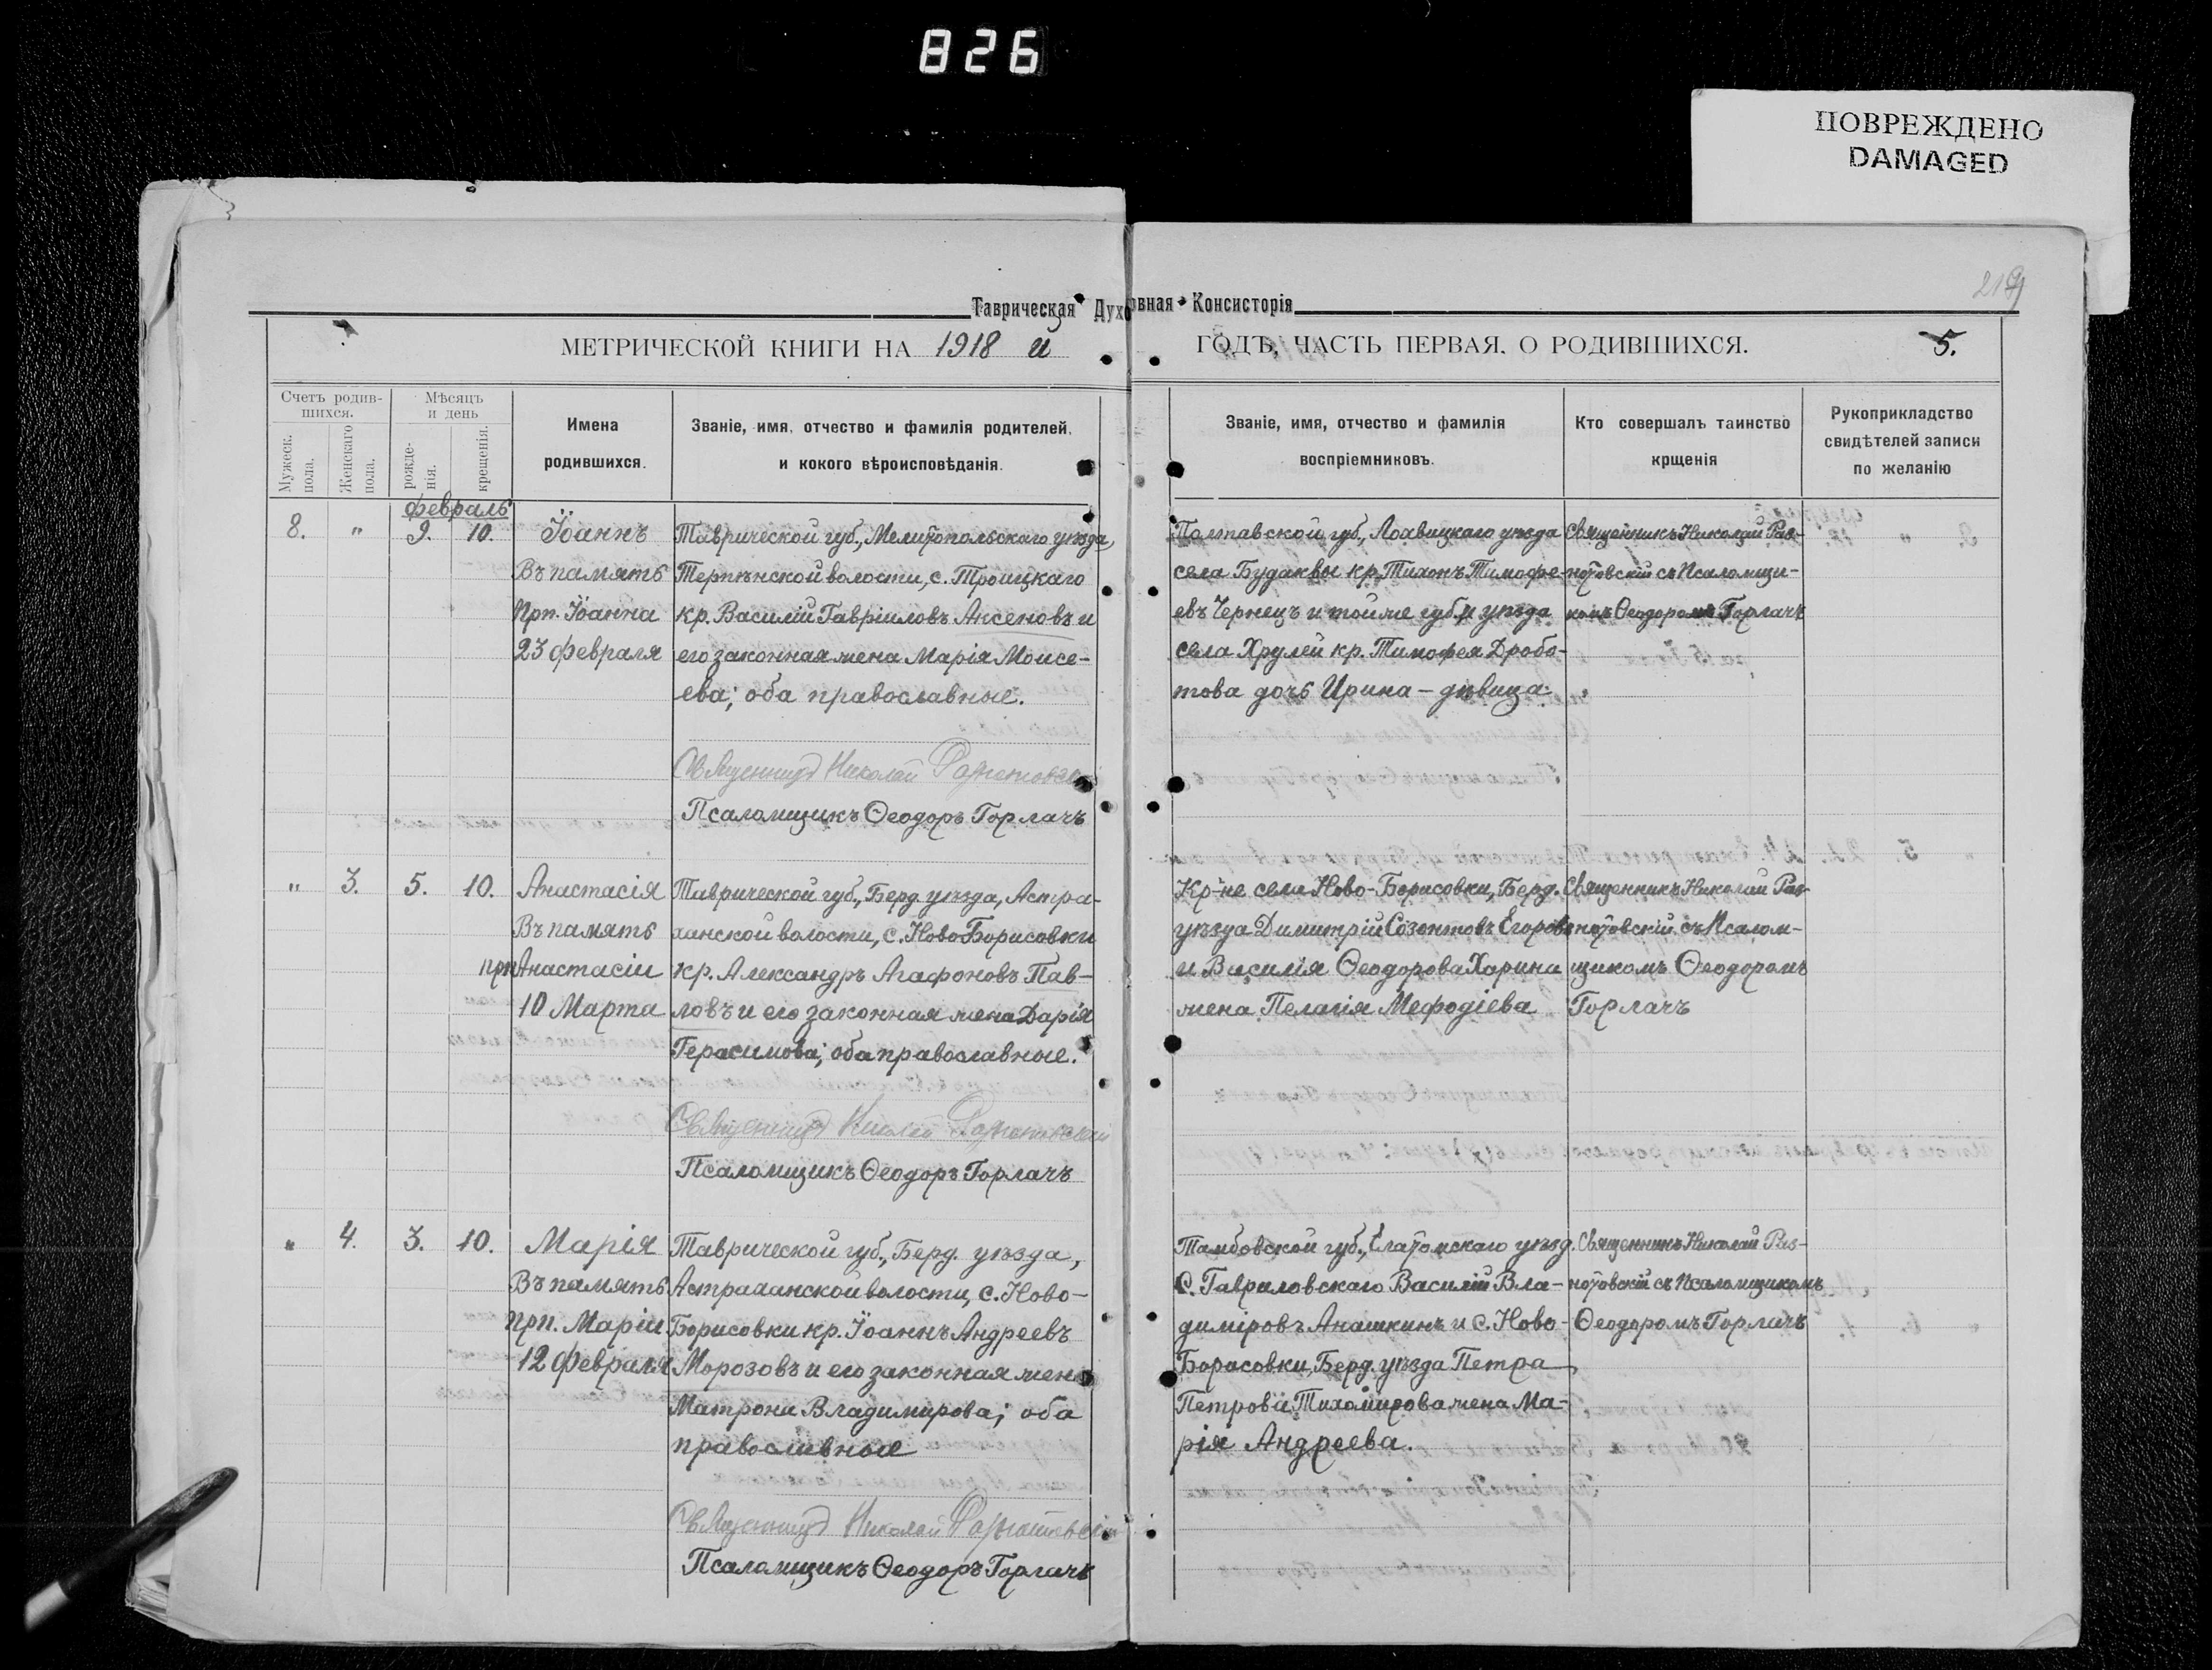 826
ПОВРЕЖДЕНО
DAMAGED
219
Таврическая Духовная Консисторія
МЕТРИЧЕСКОЙ КНИГИ НА 1918 й ГОДЪ, ЧАСТЬ ПЕРВАЯ. О РОДИВШИХСЯ.
5.
Счетъ родив-
шихся.
Мужеск.
пола.
Женскаго
пола.
Мѣсяцъ
и день
рожде-
нія.
крещенія.
Имена
родившихся.
Званіе, имя, отчество и фамилія родителей,
и кокого вѣроисповѣданія.
Званіе, имя, отчество и фамилія
воспріемниковъ.
Кто совершалъ таинство
крщенія
Рукоприкладство
свидѣтелей записи
по желанію
Февраль
8. " 9. 10.
Іоаннъ
Въ память
Прп. Іоанна
23 Февраля
Таврической губ., Мелитопольскаго уѣзда,
Терпѣнской волости, с. Троицкаго
кр. Василій Гавріиловъ Аксеновъ и
его законная жена Марія Моисе-
ева; оба православные.
Священникъ Николай
Псаломщикъ Ѳеодоръ Горлачъ
Полтавской губ., Лохвицкаго уѣзда
села Будаквы кр. Тихонъ Тимофе-
евъ Чернецъ и той же губ. и уѣзда
села Хрулей кр. Тимофея Дробо-
това дочь Ирина - дѣвица
Священникъ Николай
съ Псаломщи-
комъ Ѳеодоромъ Горлачъ
" 3. 5. 10.
Анастасія
Въ память
прп Анастасіи
10 Марта
Таврической губ., Берд. уѣзда, Астра-
ханской волости, с. Ново Борисовки
кр. Александръ Агафоновъ Пав-
ловъ и его законная жена Дарія
Герасимова; оба православные.
Священникъ Николай
Псаломщикъ Ѳеодоръ Горлачъ
Кр-не села Ново-Борисовки, Берд.
уѣзда Димитрій Созонтовъ Егоровъ
и Василія Ѳеодорова Харина
жена Пелагія Мефодіева
Священникъ Николай
съ Псалом-
щикомъ Ѳеодоромъ
Горлачъ
" 4. 3. 10.
Марія
Въ память
прп. Маріи
12 Февраля
Таврической губ., Берд. уѣзда,
Астраханской волости, с. Ново-
Борисовки кр. Іоаннъ Андреевъ
Морозовъ и его законная жена
Матрона Владимирова; оба
православные
Священникъ Николай
Псаломщикъ Ѳеодоръ Горлачъ
Тамбовской губ., Елатомскаго уѣзд.
С. Гавриловскаго Василій Вла-
диміровъ Анашкинъ и С. Ново-
Борисовки, Берд. уѣзда Петра
Петрова Тихомирова жена Ма-
рія Андреева.
Священникъ Николай
съ Псаломщикомъ
Ѳеодоромъ Горлачъ